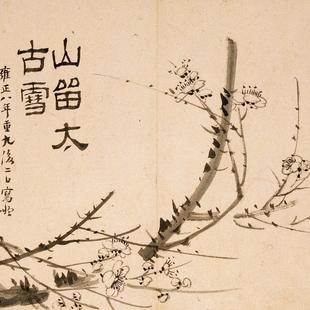 山留太
古雪
雍正八年重九後二日寫於